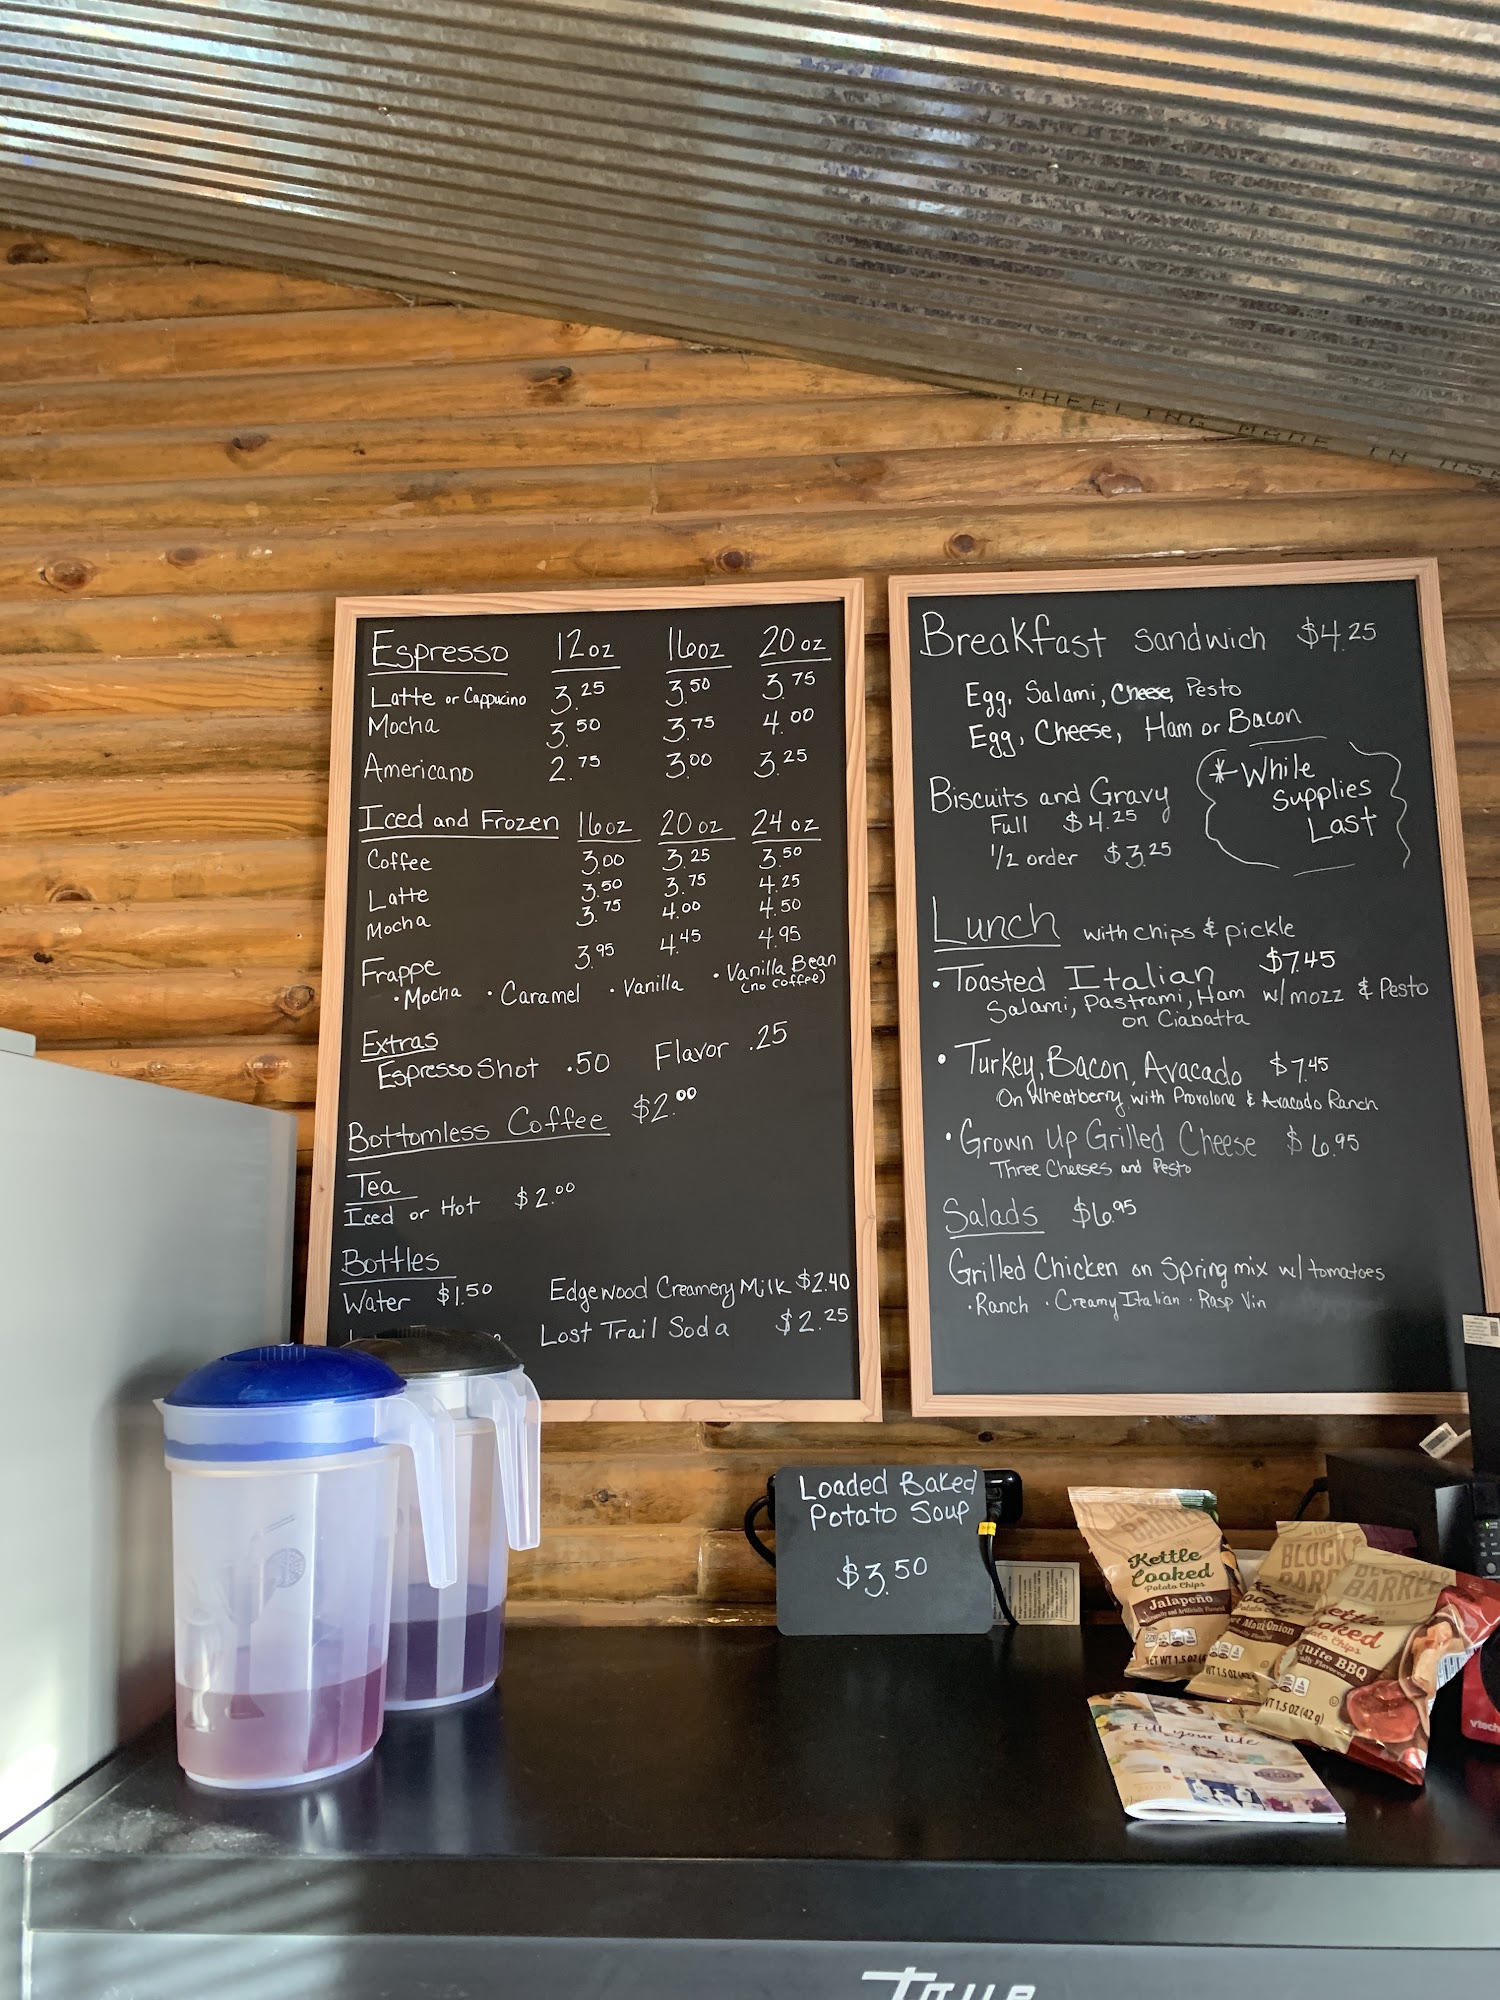 WHEELING MADE IN USA
Espresso 12oz 16oz 20oz
Latte or Cappucino 3.25 3.50 3.75
Mocha 3.50 3.75 4.00
Americano 2.75 3.00 3.25
Iced and Frozen 16oz 20oz 24oz
Coffee 3.00 3.25 3.50
Latte 3.50 3.75 4.25
Mocha 3.75 4.00 4.50
Frappe 3.95 4.45 4.95
• Mocha • Caramel • Vanilla • Vanilla Bean
(no coffee)
Extras
Espresso Shot .50 Flavor .25
Bottomless Coffee $2.00
Tea
Iced or Hot $2.00
Bottles
Water $1.50 Edgewood Creamery Milk $2.40
Lost Trail Soda $2.25
Breakfast Sandwich $4.25
Egg, Salami, Cheese, Pesto
Egg, Cheese, Ham or Bacon
Biscuits and Gravy
Full $4.25
1/2 order $3.25
* While
Supplies
Last
Lunch with chips & pickle
• Toasted Italian $7.45
Salami, Pastrami, Ham w/mozz & Pesto
on Ciabatta
• Turkey, Bacon, Avacado $7.45
On Wheatberry with Provolone & Avacado Ranch
• Grown Up Grilled Cheese $6.95
Three Cheeses and Pesto
Salads $6.95
Grilled Chicken on Spring mix w/ tomatoes
• Ranch • Creamy Italian • Rasp Vin
Loaded Baked
Potato Soup
$3.50
Kettle
Cooked
Potato Chips
Jalapeño
NET WT 1.5 OZ
BLOCK
BARR
Maui Onion
WT 1.5 OZ
BARREL
Kettle
Cooked
Potato Chips
quite BBQ
WT 1.5 OZ (42 g)
Fill your life
vtech
True